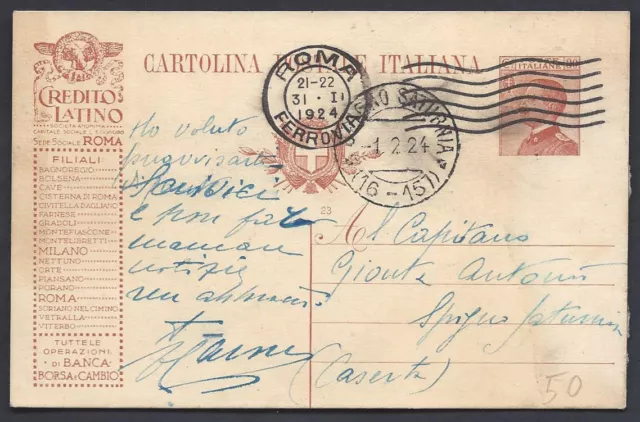 CARTOLINA POSTALE ITALIANA
CREDITO
LATINO
SOCIETÀ ANONIMA
SEDE SOCIALE ROMA
FILIALI
BAGNOREGIO
BOLSENA
CAVE
CISTERNA DI ROMA
CIVITELLA D'AGLIANO
FARNESE
GRADOLI
MONTEFIASCONE
MONTELIBRETTI
MILANO
NETTUNO
ORTE
PIANSANO
PORANO
ROMA
SORIANO NEL CIMINO
VETRALLA
VITERBO
TUTTE LE
OPERAZIONI
DI BANCA
BORSA E CAMBIO
ROMA
21-22
31 · 1
1924
FERROVIA
SATURNIA
1 2 24
(16-157)
ITALIANE
23
Ho voluto
Scrivici
e non far
mancare
notizie
un abbraccio
Al Capitano
Gionta Antonio
Spigno Saturnia
(Caserta)
50